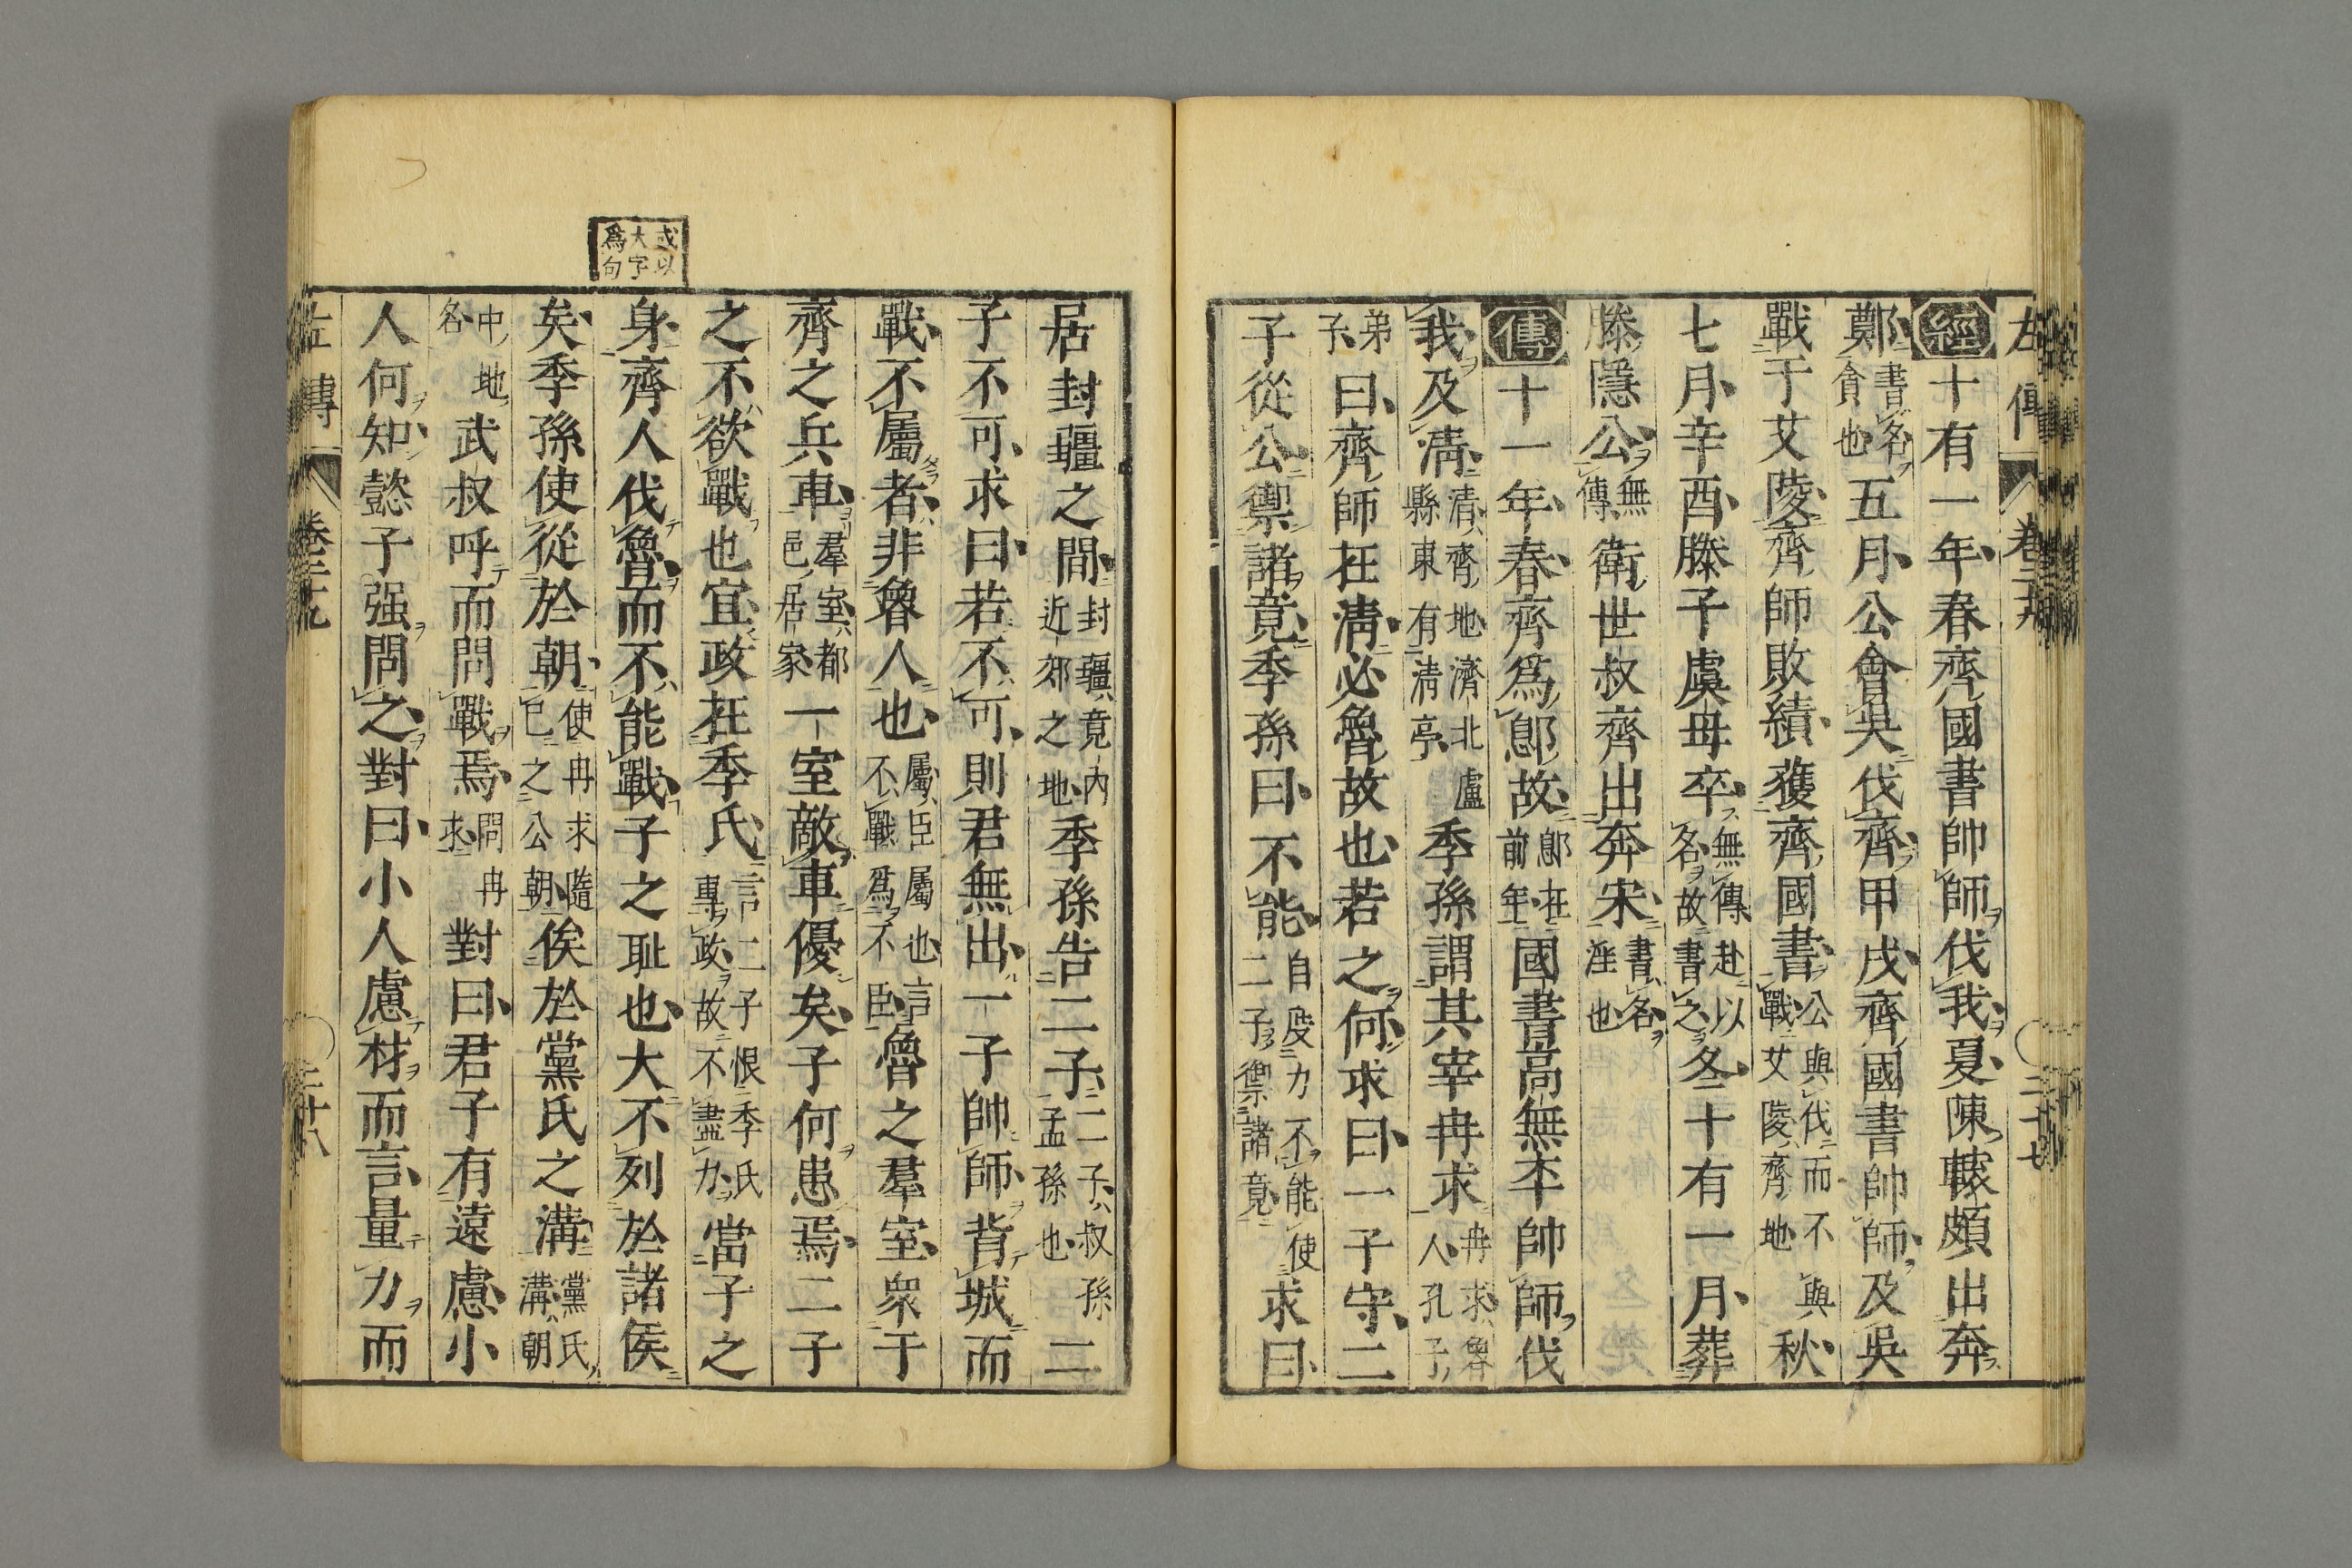 左傳 卷二十九 二十七
經十有一年春齊國書帥師伐我夏陳轅頗出奔
鄭書名貪也五月公會吳伐齊甲戌齊國書帥師及吳
戰于艾陵齊師敗績獲齊國書公與伐而不與戰艾陵齊地秋
七月辛酉滕子虞毋卒無傳赴以名故書之冬十有一月葬
滕隱公無傳衛世叔齊出奔宋書名淫也
傳十一年春齊爲郎故郎在前年國書高無㔻帥師伐
我及淸清齊地濟北盧縣東有淸亭季孫謂其宰冉求冉求魯人孔子
弟子曰齊師在淸必魯故也若之何求曰一子守二
子從公禦諸竟季孫曰不能自度力不能使二子禦諸竟求曰
居封疆之間封疆竟內近郊之地季孫告二子二子叔孫孟孫也二
子不可求曰若不可則君無出一子帥師背城而
戰不屬者非魯人也屬臣屬也言不戰爲不臣魯之羣室衆于
齊之兵車羣室都邑居家一室敵車優矣子何患焉二子
之不欲戰也宜政在季氏言二子恨季氏專政故不盡力當子之
或以大字爲句
身齊人伐魯而不能戰子之耻也大不列於諸侯
矣季孫使從於朝使冉求隨已之公朝俟於黨氏之溝黨氏溝朝
中地名武叔呼而問戰焉問冉求對曰君子有遠慮小
人何知懿子强問之對曰小人慮材而言量力而
左傳 卷二十九 二十八